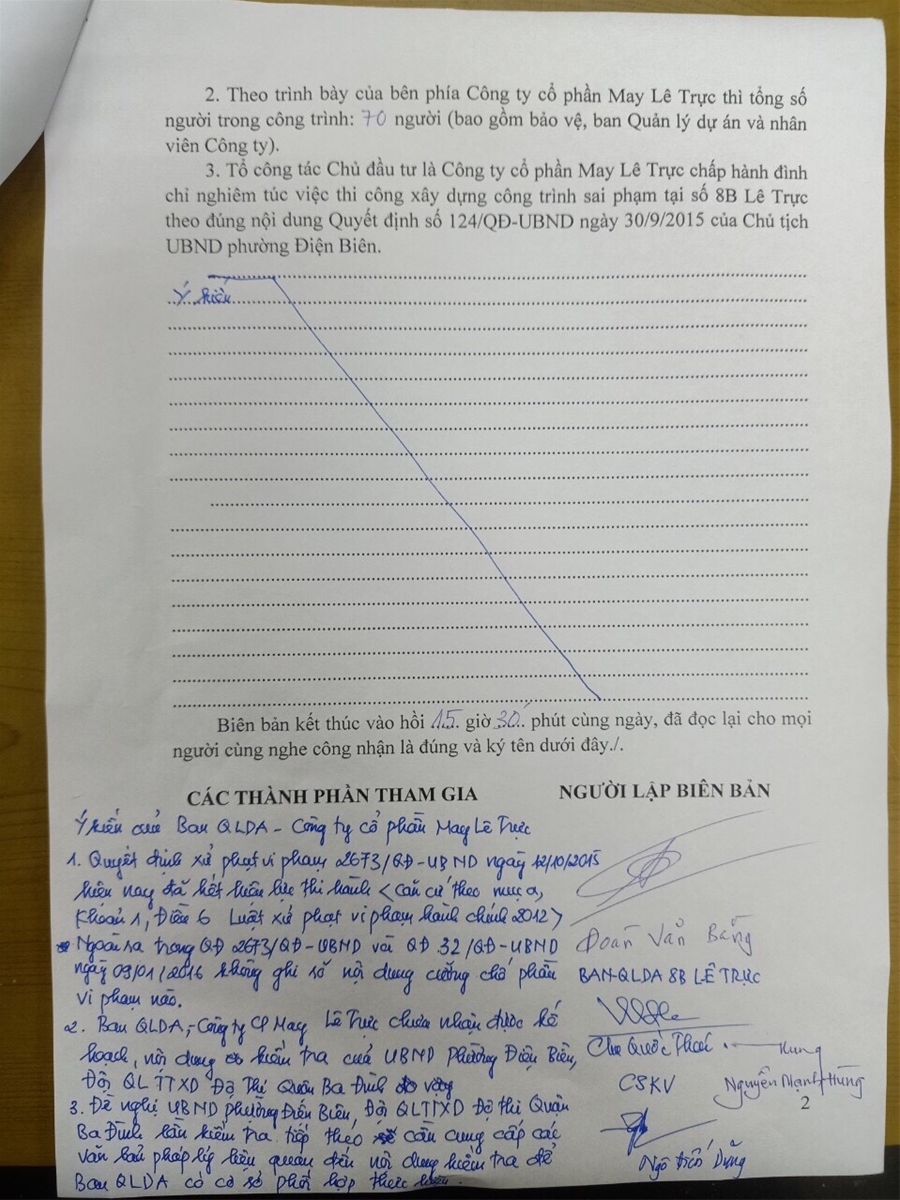 2. Theo trình bày của bên phía Công ty cổ phần May Lê Trực thì tổng số
người trong công trình: 70 người (bao gồm bảo vệ, ban Quản lý dự án và nhân
viên Công ty).
3. Tổ công tác Chủ đầu tư là Công ty cổ phần May Lê Trực chấp hành đình
chỉ nghiêm túc việc thi công xây dựng công trình sai phạm tại số 8B Lê Trực
theo đúng nội dung Quyết định số 124/QĐ-UBND ngày 30/9/2015 của Chủ tịch
UBND phường Điện Biên.
Ý kiến
Biên bản kết thúc vào hồi 15 giờ 30 phút cùng ngày, đã đọc lại cho mọi
người cùng nghe công nhận là đúng và ký tên dưới đây./.
CÁC THÀNH PHẦN THAM GIA
NGƯỜI LẬP BIÊN BẢN
Ý kiến của Ban QLDA - Công ty cổ phần May Lê Trực
1. Quyết định xử phạt vi phạm 2673/QĐ-UBND ngày 12/10/2015
hiện nay đã hết hiệu lực thi hành <căn cứ theo mục a,
Khoản 1, Điều 6 Luật xử phạt vi phạm hành chính 2012>
* Ngoài ra trong QĐ 2673/QĐ-UBND và QĐ 32/QĐ-UBND
ngày 09/01/2016 không ghi số nội dung cưỡng chế phần
vi phạm nào.
2. Ban QLDA, Công ty CP May Lê Trực chưa nhận được kế
hoạch, nội dung kiểm tra của UBND Phường Điện Biên,
Đội QLTTXD Đô Thị Quận Ba Đình
3. Đề nghị UBND phường Điện Biên, Đội QLTTXD Đô thị Quận
Ba Đình lần kiểm tra tiếp theo cần cung cấp các
văn bản pháp lý liên quan đến nội dung kiểm tra để
Ban QLDA có cơ sở phối hợp thực hiện.
Đoàn Văn Bằng
BAN QLDA 8B LÊ TRỰC
Chu Quốc
CSKV
Hung
Nguyễn Mạnh Hùng
2
Ngô Tiến Dũng